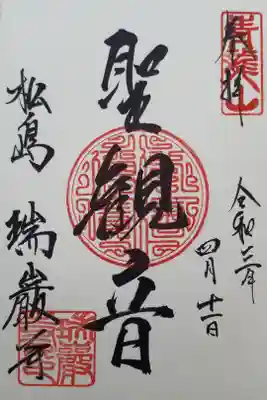 奉拝
令和三年
四月十一日
聖観音
松島 瑞巌寺